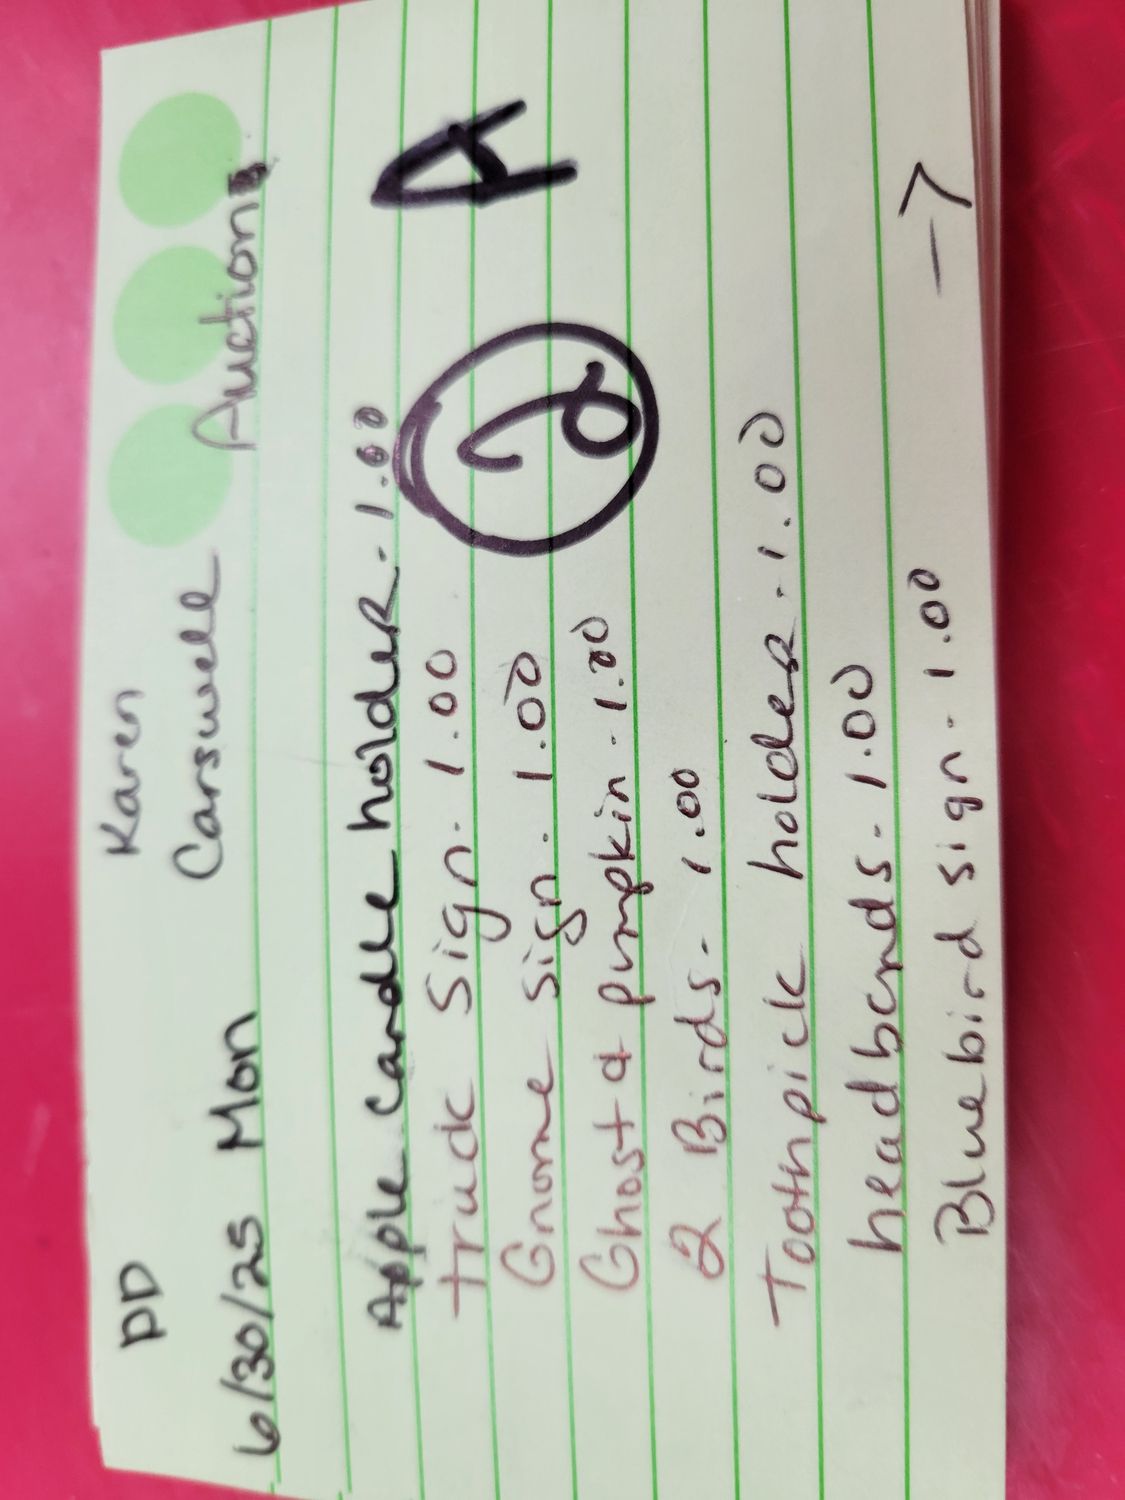 PD Karen
6/30/25 Mon Carswell Auction
Apple candle holder. 1.00
A
truck Sign. 1.00
Gnome sign. 1.00
2
Ghost & pumpkin. 1.00
2 Birds. 1.00
Toothpick holder. 1.00
headbands. 1.00
Bluebird sign. 1.00 →